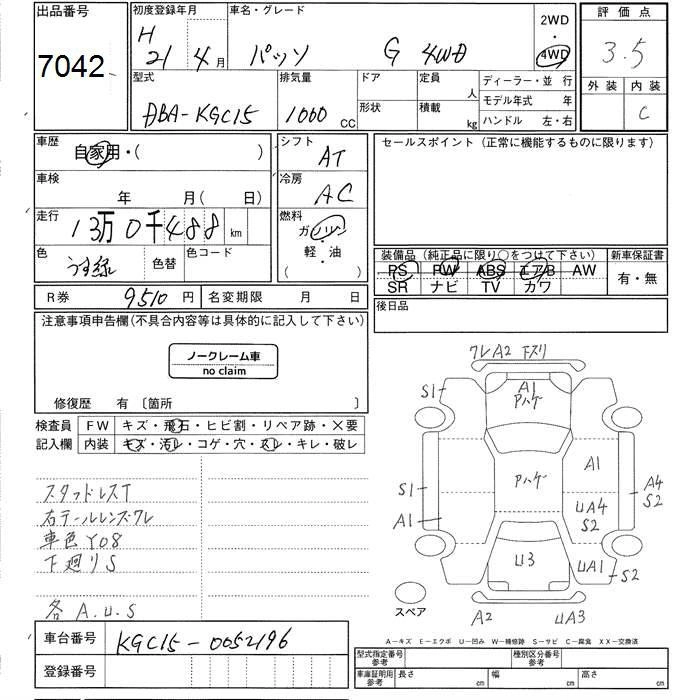 出品番号
7042
初度登録年月
H 21年 4月
車名・グレード
パッソ G 4WD
2WD
・
4WD
評価点
3.5
外装 内装
C
型式
DBA-KGC15
排気量
1000 CC
ドア
形状
定員 人
積載 kg
ディーラー・並行
モデル年式 年
ハンドル 左・右
車歴
自家用・( )
シフト
AT
セールスポイント(正常に機能するものに限ります)
車検
年 月( 日)
冷房
AC
走行
13万0千488 km
燃料
ガソリン
・
軽・油
( )
色
うす緑
色替
色コード
装備品(純正品に限り○をつけて下さい)
PS PW ABS エアB AW
SR ナビ TV カワ
新車保証書
有・無
R券 9510円
名変期限 月 日
後日品
注意事項申告欄(不具合内容等は具体的に記入して下さい)
ノークレーム車
no claim
修復歴 有 〔箇所 〕
検査員
記入欄
FW キズ・飛石・ヒビ割・リペア跡・×要
内装 キズ・汚レ・コゲ・穴・スレ・キレ・破レ
スタッドレスT
右テールレンズワレ
車色Y08
下廻りS
各A.U.S
ワレA2 下スリ
S1
A1
Pハゲ
A1
Pハゲ
S1
A1
UA4
S2
A4
S2
U3
UA1
S2
スペア
A2
UA3
A-キズ E-エクボ U-凹み W-補修跡 S-サビ C-腐食 XX-交換済
車台番号 KGC15-0052196
登録番号
型式指定番号
参考
種別区分番号
参考
車庫証明用
参考
長さ cm
幅 cm
高さ cm